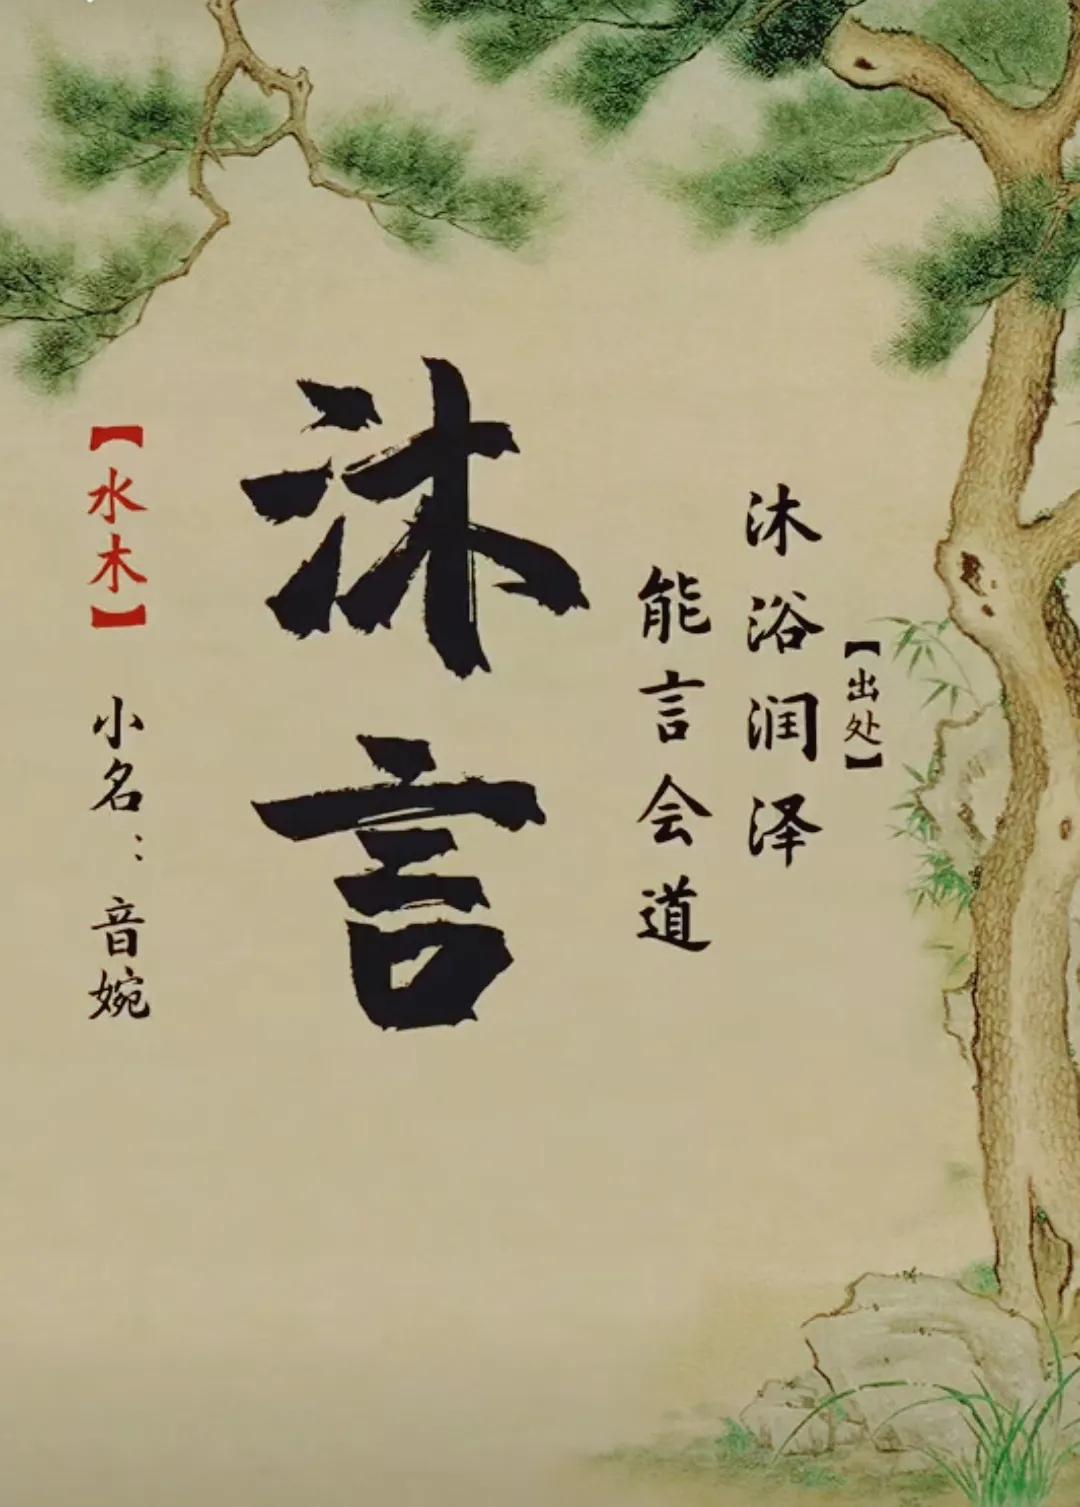 【出处】
沐浴润泽
能言会道
沐言
【水木】 小名：音婉